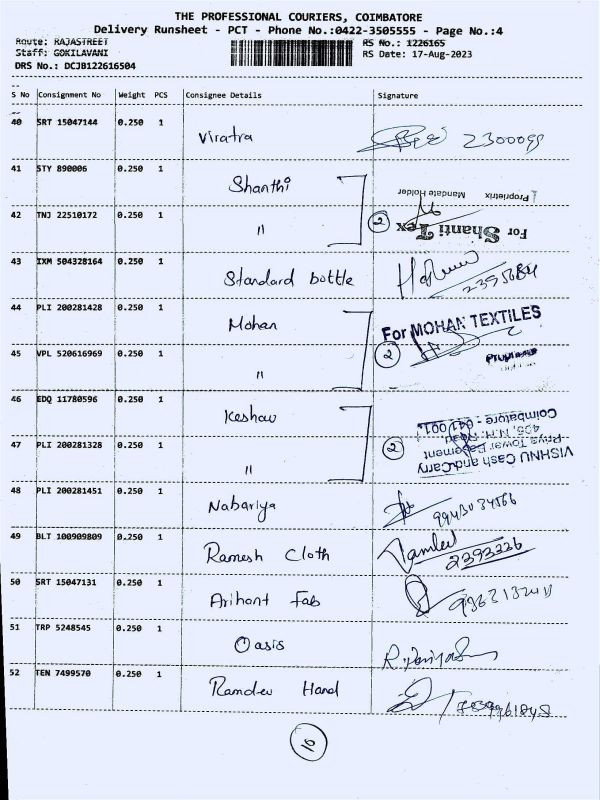 THE PROFESSIONAL COURIERS, COIMBATORE
Delivery Runsheet - PCT - Phone No.:0422-3505555 - Page No.:4
Route: RAJASTREET RS No.: 1226165
Staff: GOKILAVANI RS Date: 17-Aug-2023
DRS No.: DCJB122616504
S No Consignment No Weight PCS Consignee Details Signature
40 SRT 15047144 0.250 1 Viratra 2300099
41 STY 890006 0.250 1 Shanthi
Proprietrix Mandate Holder
42 TNJ 22510172 0.250 1 〃 2 For Shanti Tex
43 IXM 504328164 0.250 1 Standard bottle
44 PLI 200281428 0.250 1 Mohan For MOHAN TEXTILES
45 VPL 520616969 0.250 1 〃 2
46 EDQ 11780596 0.250 1 Keshav
47 PLI 200281328 0.250 1 〃 2
VISHNU Cash and Carry
Priya Tower Basement
405, N.H. Road
Coimbatore - 641 001.
48 PLI 200281451 0.250 1 Nabariya
49 BLT 100909809 0.250 1 Ramesh Cloth 2393226
50 SRT 15047131 0.250 1 Arihant Fab
51 TRP 5248545 0.250 1 Oasis
52 TEN 7499570 0.250 1 Ramdev Hand